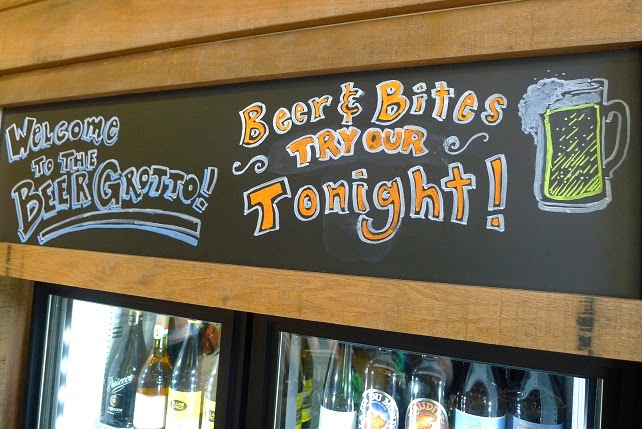 Welcome
to the
Beer Grotto!
Beer & Bites
Try our
Tonight!